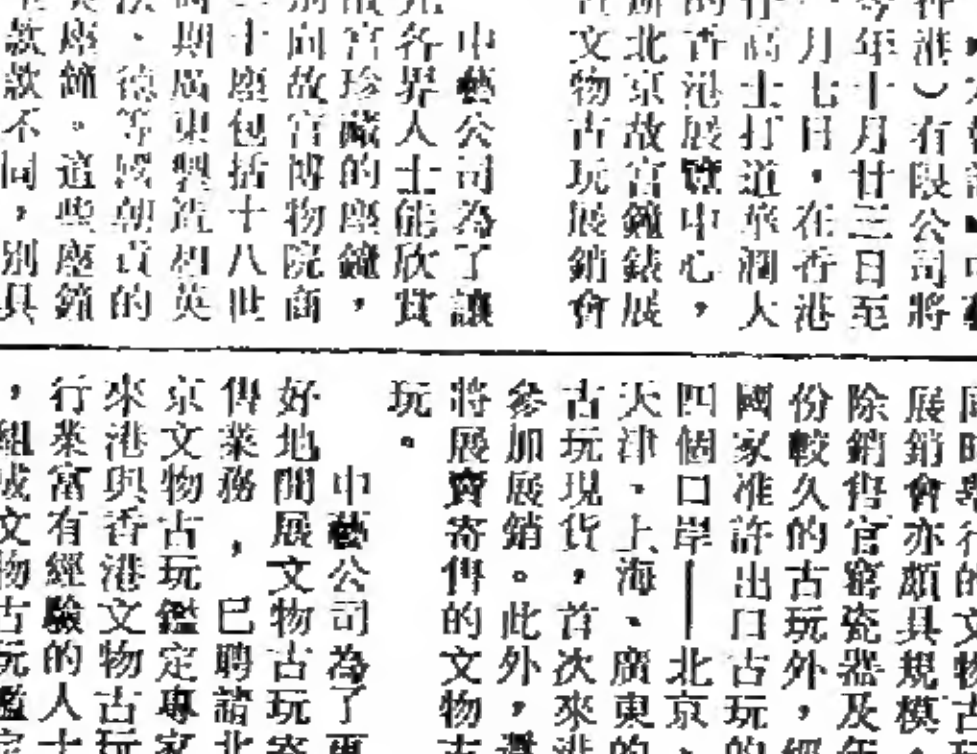 香港）有限公司將
今年十月廿三日至
月七日，在香港
高士打道華潤大
的香港展覽中心，
辦北京故宮鐘錶展
文物古玩展銷會
中藝公司為了讓
各界人士能欣賞
故宮珍藏的座鐘，
別向故宮博物院商
十座包括十八世
時期廣東製造和英
、德等國朝貢的
座鐘。這些座鐘
款款不同，別具
同時舉行的文物古
展銷會亦頗具規模
除銷售官窰瓷器及年
份較久的古玩外，經
國家准許出口古玩的
四個口岸——北京、
天津、上海、廣東的
古玩現貨，首次來港
參加展銷。此外，還
將展賣寄售的文物古
玩。
中藝公司為了更
好地開展文物古玩寄
售業務，已聘請北
京文物古玩鑑定專家
來港與香港文物古玩
行業富有經驗的人士
，組成文物古玩鑑定